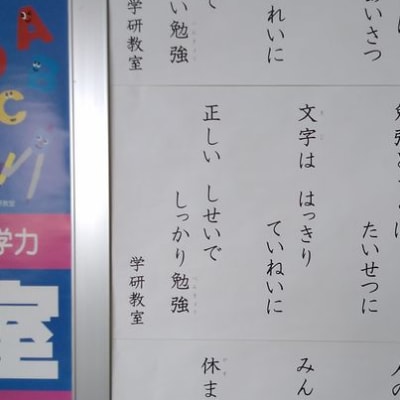 あいさつ
れいに
て
い勉強
学研教室
たいせつに
文字は はっきり
ていねいに
正しい しせいで
しっかり勉強
学研教室
人の
みん
休ま
A
B
C
学力
室